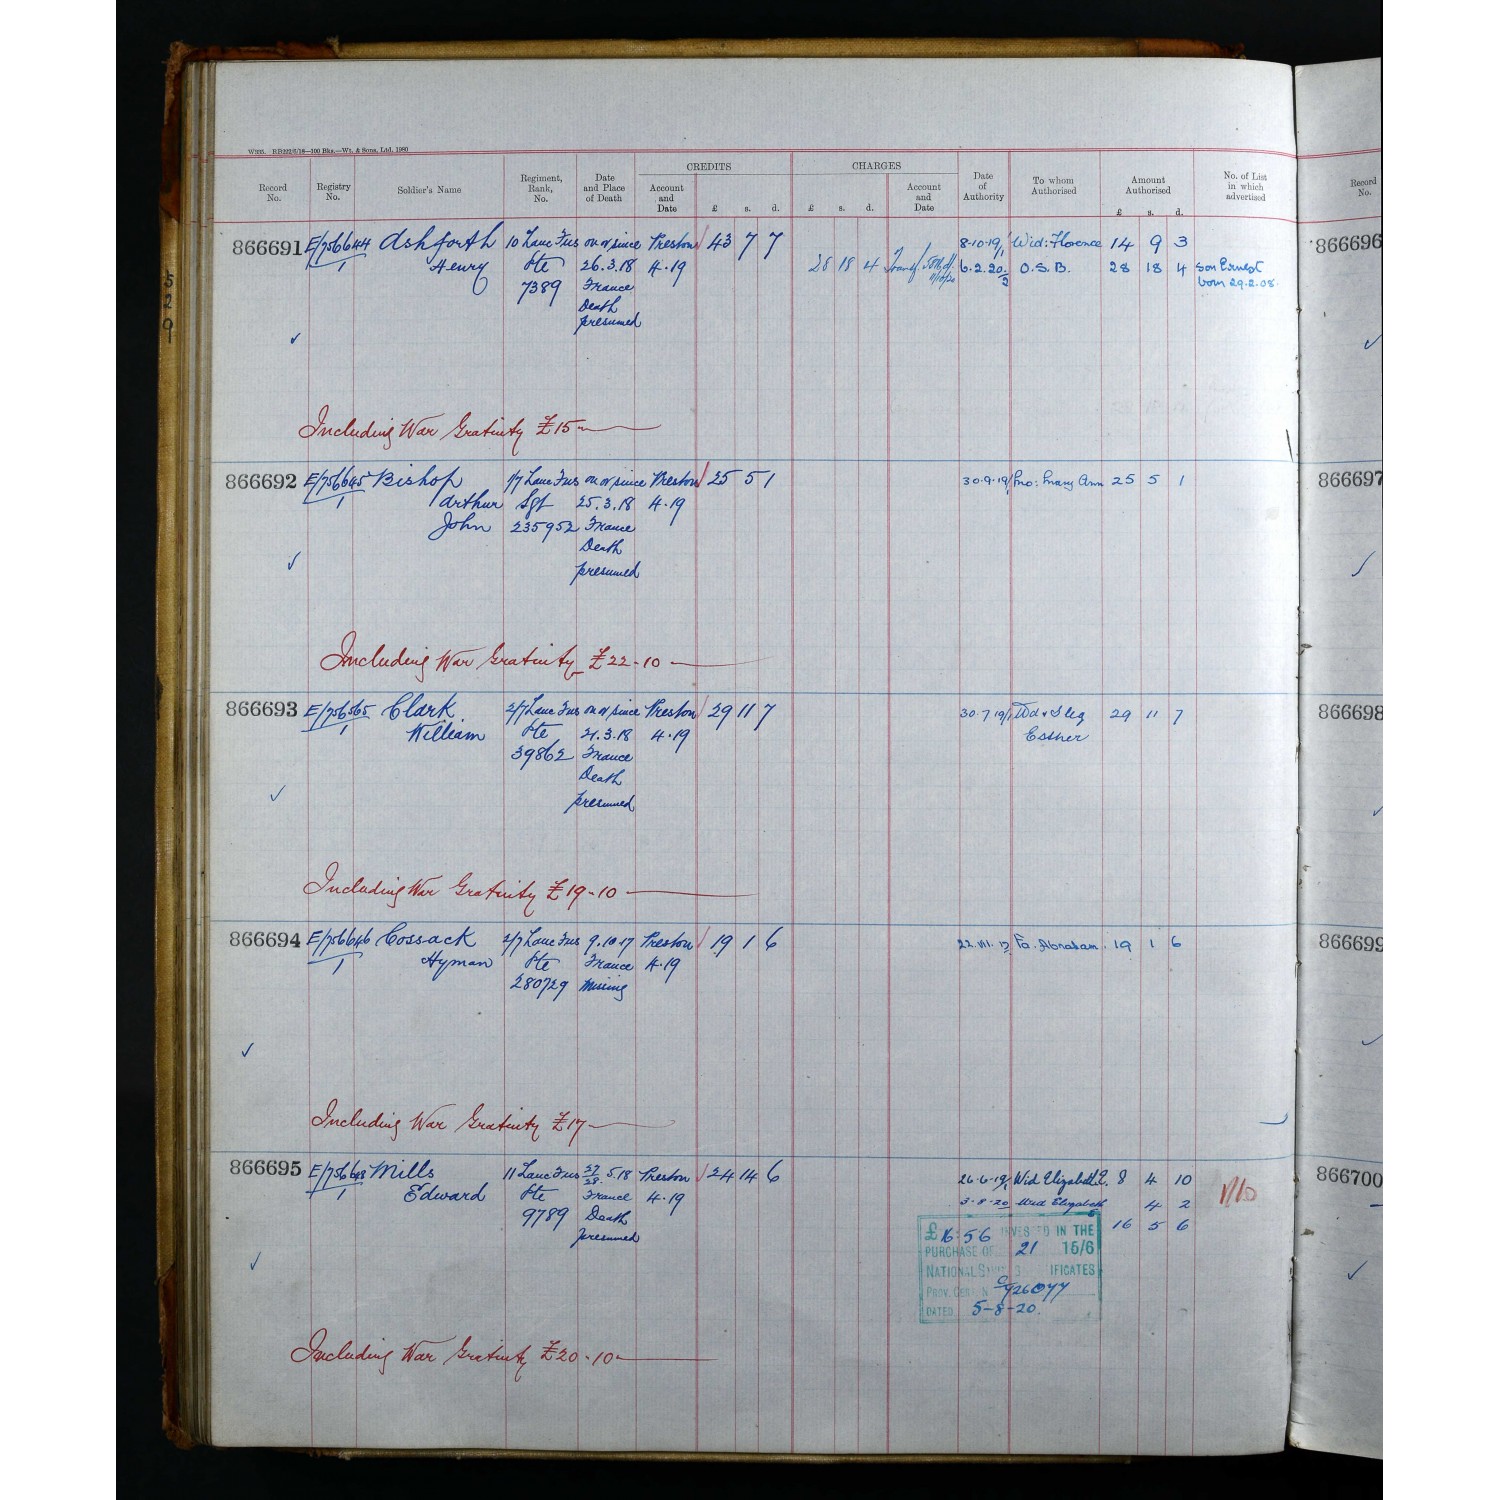 W525. RP222/6/18—100 Bks.—Wt. & Sons, Ltd. 1980
CREDITS CHARGES
Record No. Registry No. Soldier's Name Regiment, Rank, No. Date and Place of Death Account and Date £ s. d. £ s. d. Account and Date Date of Authority To whom Authorised Amount Authorised £ s. d. No. of List in which advertised Record No.
866691 E/756644 Ashforth 10 Lanc Fus on or since Preston 43 7 7 8-10-19/1 Wid: Florence 14 9 3 866696
1 Henry Pte 26.3.18 4.19 28 18 4 Transf 6.2.20/2 O.S.B. 28 18 4 son Ernest
7389 France born 29.2.08.
Death
presumed
529
Including War Gratuity £15
866692 E/756645 Bishop 1/7 Lanc Fus on or since Preston 25 5 1 30.9.19/1 Mo: Mary Ann 25 5 1 866697
1 Arthur Sgt 25.3.18 4.19
John 235952 France
Death
presumed
Including War Gratuity £22-10
866693 E/756565 Clark 2/7 Lanc Fus on or since Preston 29 11 7 30.7.19/1 Wid & Sleg 29 11 7 866698
1 William Pte 21.3.18 4.19 Esther
39862 France
Death
presumed
Including War Gratuity £19-10
866694 E/756646 Cossack 2/7 Lanc Fus 9.10.17 Preston 19 1 6 22.VII.19 Fa. Abraham 19 1 6 866699
1 Hyman Pte France 4.19
280729 Missing
Including War Gratuity £17
866695 E/756648 Mills 11 Lanc Fus 27/28.5.18 Preston 24 14 6 26-6-19/1 Wid Elizabeth E. 8 4 10 866700
1 Edward Pte France 4.19 3-8-20 Wid Elizabeth 4 2
9789 Death 16 5 6
presumed
£16:56 INVESTED IN THE
PURCHASE OF 21 15/6
NATIONAL SAVINGS CERTIFICATES
PROV. CER N C/926077
DATED 5-8-20.
Including War Gratuity £20-10